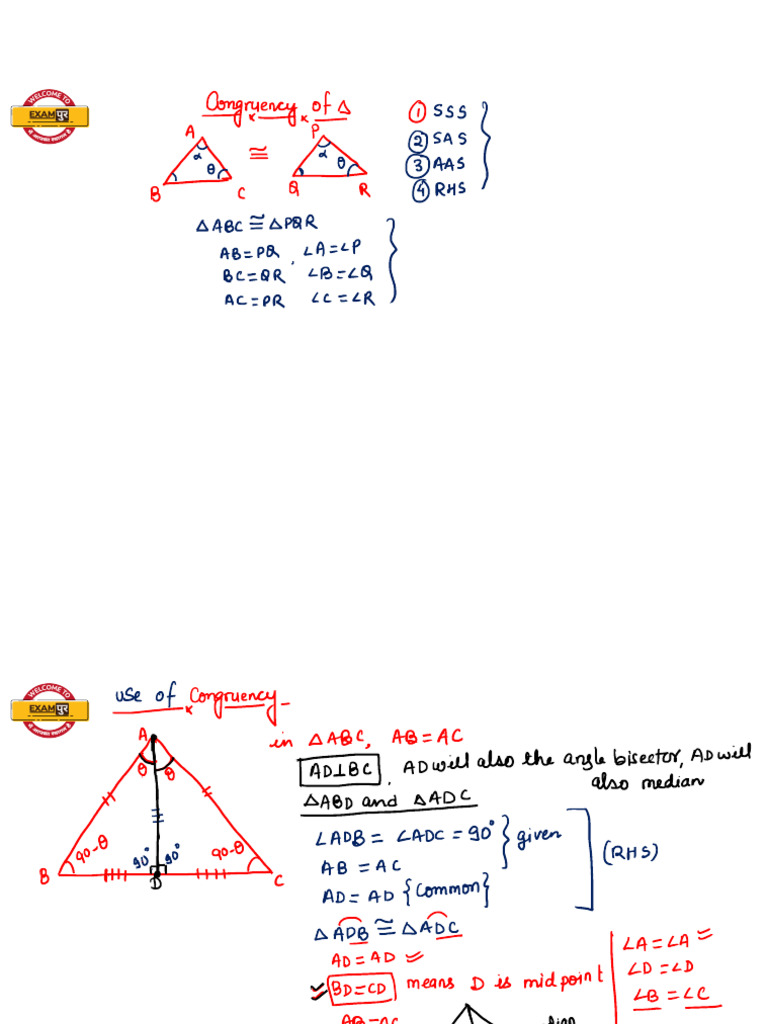 WELCOME TO
EXAM पुर
Congruency of Δ
A
P
α
θ
α
θ
≅
B
C
Q
R
① SSS
② SAS
③ AAS
④ RHS
ΔABC ≅ ΔPQR
AB=PQ, ∠A=∠P
BC=QR ∠B=∠Q
AC=PR ∠C=∠R
WELCOME TO
EXAM पुर
use of Congruency
in ΔABC, AB=AC
AD⊥BC, AD will also the angle bisector, AD will
also median
ΔABD and ΔADC
∠ADB = ∠ADC = 90° } given
AB = AC
AD = AD {Common}
(RHS)
ΔADB ≅ ΔADC
AD = AD
BD=CD means D is midpoint
∠A=∠A
∠D=∠D
∠B=∠C
AB=AC
A
θ
θ
90-θ
90°
90°
90-θ
B
D
C